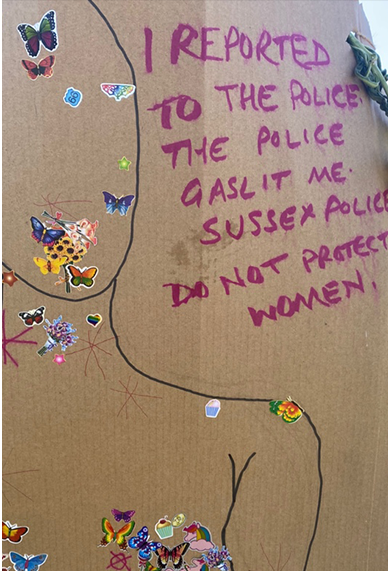 I REPORTED
TO THE POLICE.
THE POLICE
GASLIT ME.
SUSSEX POLICE
DO NOT PROTECT
WOMEN.